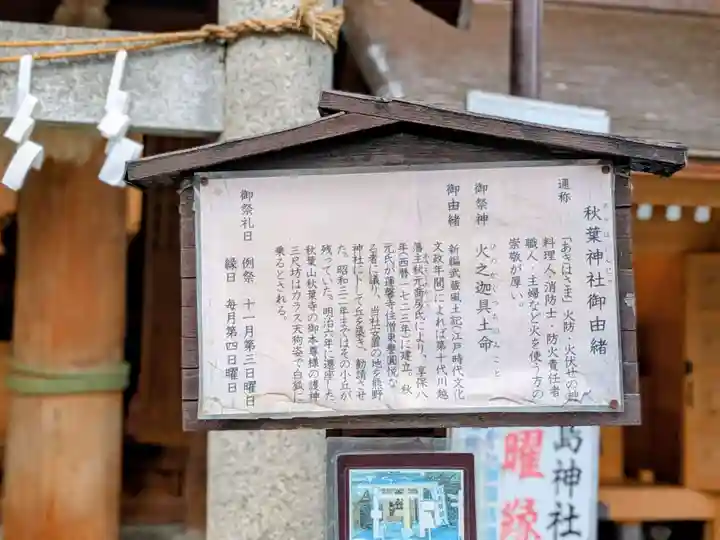 秋葉神社御由緒
通称 「あきはさま」火防・火伏せの神
料理人・消防士・防火責任者
職人・主婦など火を使う方の
崇敬が厚い。
御祭神 火之迦具土命
御由緒 新編武蔵風土記(江戸時代文化
文政年間)によれば第十代川越
藩主秋元喬房氏により、享保八
年(西暦一七二三年)に建立。秋
元氏が蓮馨寺住僧
る者に議り、当社安置の地を熊野
神社に卜して丘を築き、勧請させ
た。昭和三二年まではその小丘が
残っていた。明治六年に遷座した
秋葉山秋葉寺の御本尊様の護神
三尺坊はカラス天狗姿で白狐に
乗るとされる。
御祭礼日 例祭 十一月第三日曜日
縁日 毎月第四日曜日
島神社
曜 縁